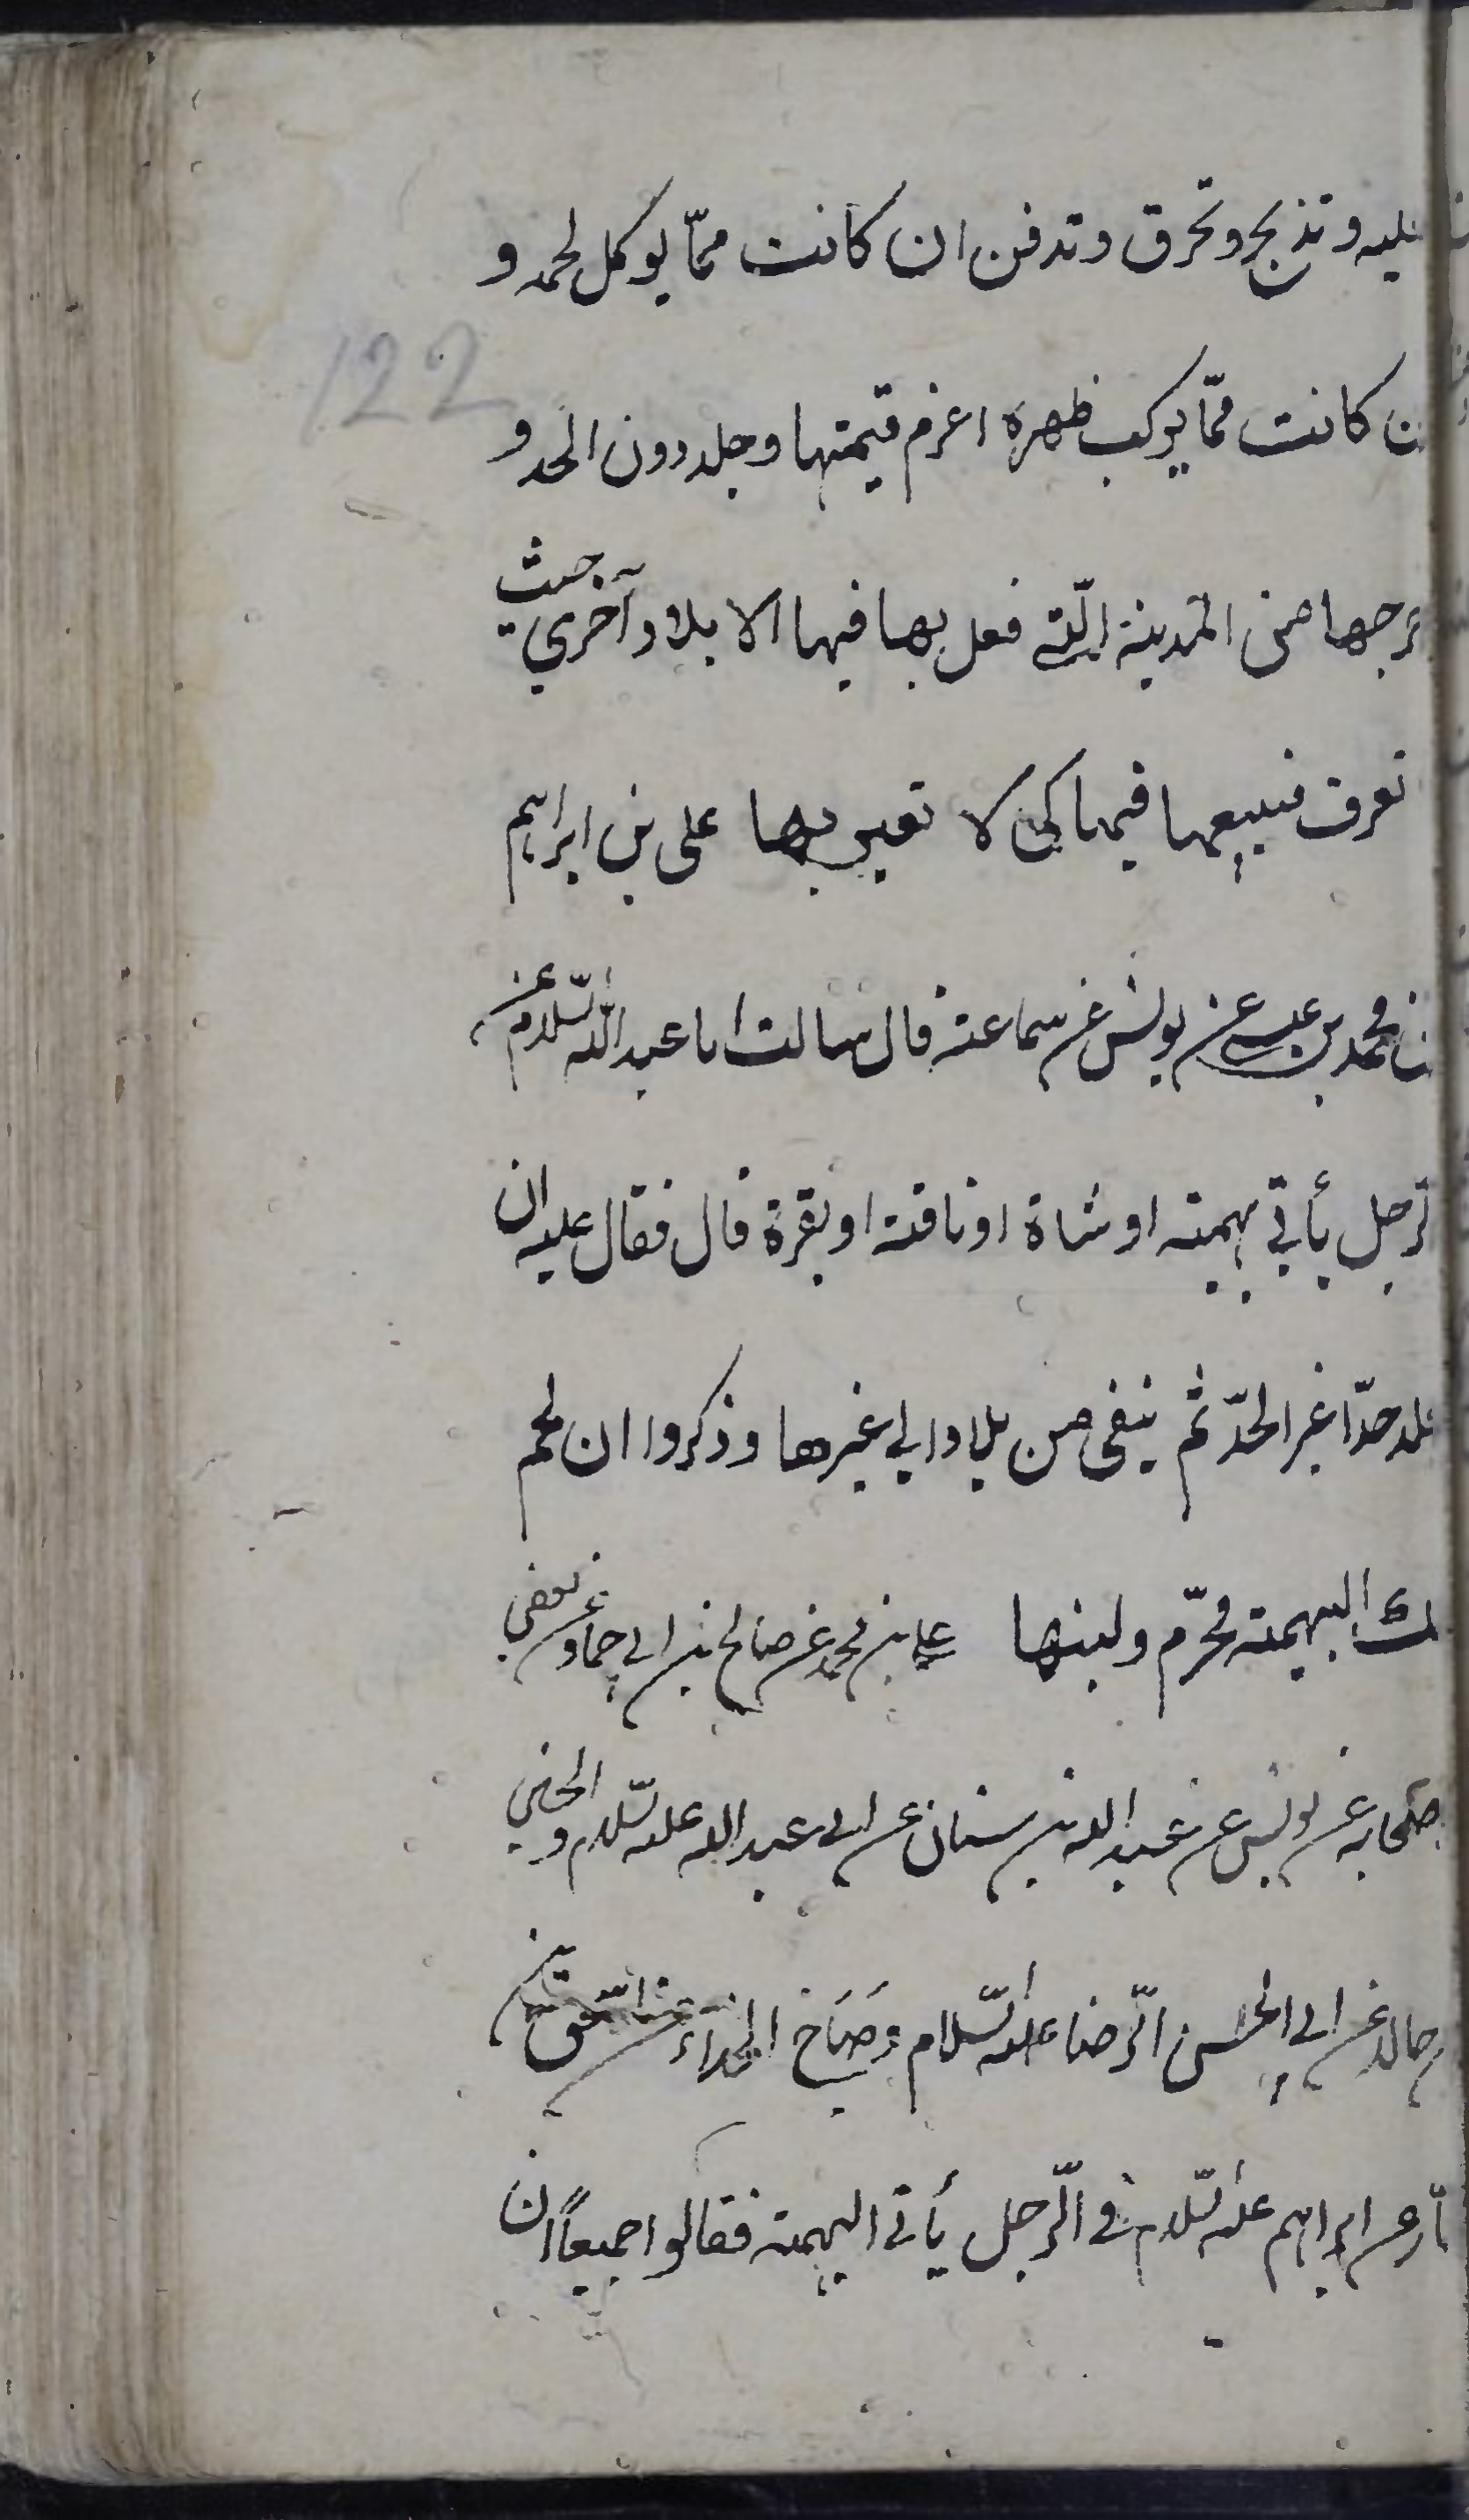 عليه وتذبح وتحرق وتدفن ان كانت ممّا يوكل لحمه و
ان كانت ممّا يركب ظهره اغرم قيمتها وجلد دون الحد و
خرجها من المدينة الّتي فعل بها فيها الا بلاد آخري حيث
تعرف فيبيعها فيها كي لا تعير بها علي بن ابراهيم
عن محمد بن عيسي عن يونس عن سماعة قال سالت ابا عبدالله السّلام عن
لرجل يأتي بهيمة او شاة او ناقة او بقرة قال فقال عليه ان
يجلد حدّا غير الحدّ ثم ينفي من بلاد الي غيرها وذكروا ان لحم
تلك البهيمة محرّم ولبنها علي بن محمد عن صالح بن ابي حماد عن بعض
اصحابه عن يونس عن عبدالله بن سنان عن ابي عبدالله عليه السّلام والحسين
بن خالد عن ابي الحسن الرّضا عليه السّلام وصباح الحذاء عن اسحق بن
عمّار عن ابراهيم عليه السّلام في الرّجل يأتي البهيمة فقالوا جميعاً ان
122